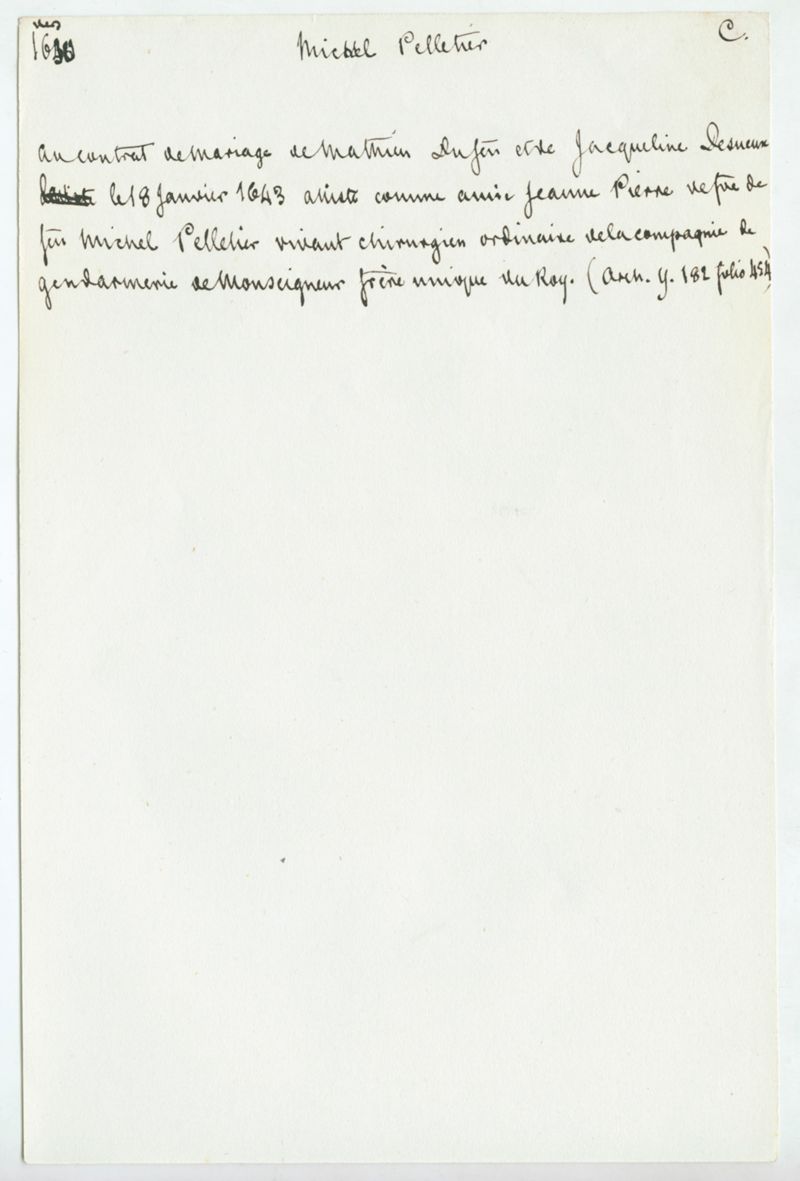 vers
16
Michel Pelletier
C.
au contrat de mariage de Mathieu Du feu et de Jacqueline Desneux
le 18 Janvier 1643 assiste comme amie Jeanne Pierre vefve de
feu Michel Pelletier vivant chirurgien ordinaire de la compagnie de
gendarmerie de Monseigneur frère unique du Roy. (Arch. Y. 182 folio 454)